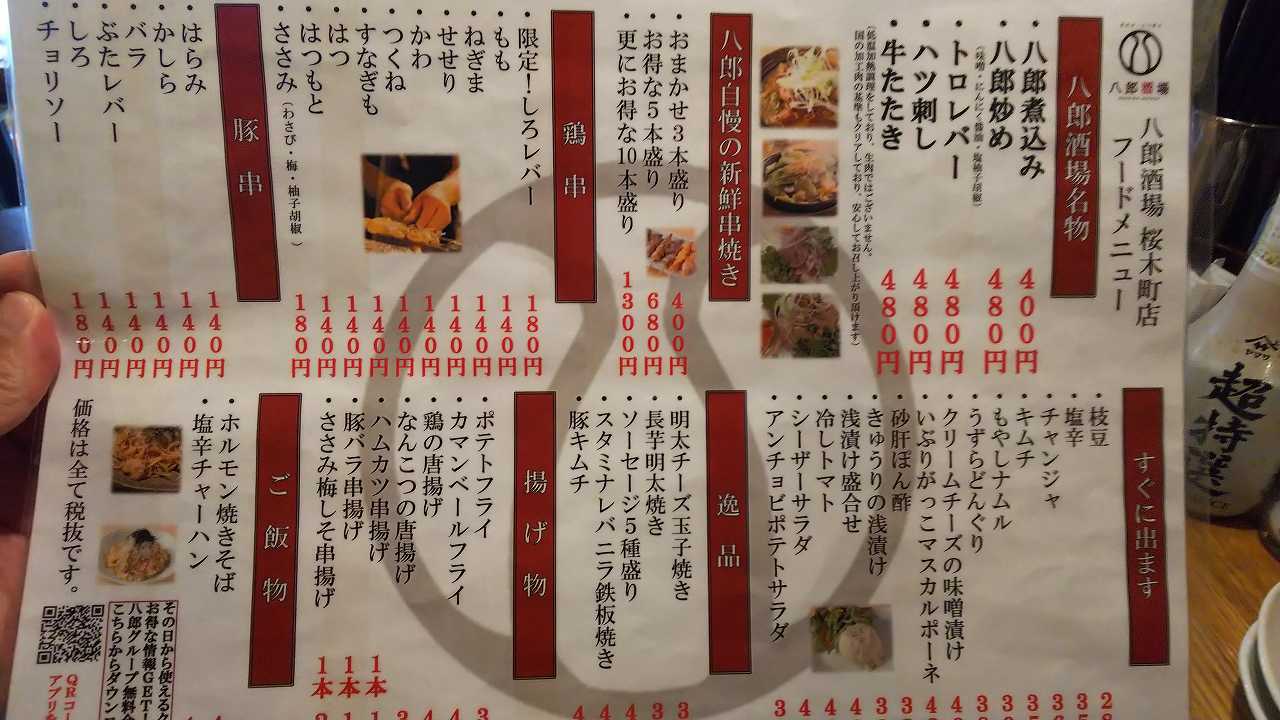 八郎酒場
八郎酒場 桜木町店
フードメニュー
八郎酒場名物
・八郎煮込み 400円
・八郎炒め 480円
(味噌・にんにく醤油・塩柚子胡椒)
・トロレバー 480円
・ハツ刺し 480円
・牛たたき 480円
(低温加熱調理をしており、生肉ではございません。
国の加工肉の基準もクリアしており、安心してお召し上がり頂けます)
八郎自慢の新鮮串焼き
・おまかせ3本盛り 400円
・お得な5本盛り 680円
・更にお得な10本盛り 1300円
鶏串
・限定!しろレバー 180円
・もも 140円
・ねぎま 140円
・せせり 140円
・かわ 140円
・つくね 140円
・すなぎも 140円
・はつ 140円
・はつもと 140円
・ささみ(わさび・梅・柚子胡椒) 180円
豚串
・はらみ 140円
・かしら 140円
・バラ 140円
・ぶたレバー 140円
・しろ 140円
・チョリソー 180円
すぐに出ます
・枝豆
・塩辛
・チャンジャ
・キムチ
・もやしナムル
・うずらどんぐり
・クリームチーズの味噌漬け
・いぶりがっこマスカルポーネ
・砂肝ぽん酢
・きゅうりの浅漬け
・浅漬け盛合せ
・冷しトマト
・シーザーサラダ
・アンチョビポテトサラダ
逸品
・明太チーズ玉子焼き
・長芋明太焼き
・ソーセージ5種盛り
・スタミナレバニラ鉄板焼き
・豚キムチ
揚げ物
・ポテトフライ
・カマンベールフライ
・鶏の唐揚げ
・なんこつの唐揚げ
・ハムカツ串揚げ 1本
・豚バラ串揚げ 1本
・ささみ梅しそ串揚げ 1本
ご飯物
・ホルモン焼きそば
・塩辛チャーハン
価格は全て税抜です。
その日から使える
お得な情報GET!
八郎グループ無料
こちらからダウン
QRコー
アプリを
ヤマサ
超特選